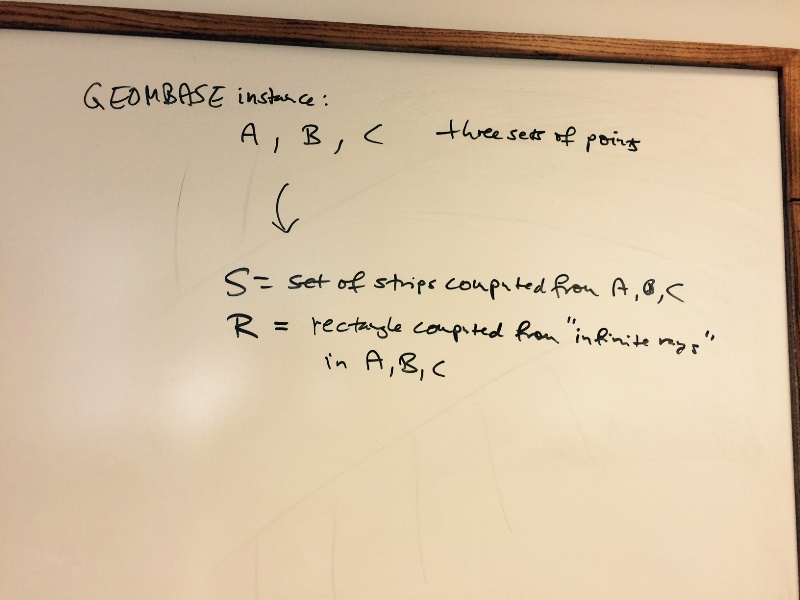 GEOMBASE instance:
A, B, C three sets of points
S = set of strips computed from A, B, C
R = rectangle computed from "infinite rays"
in A, B, C